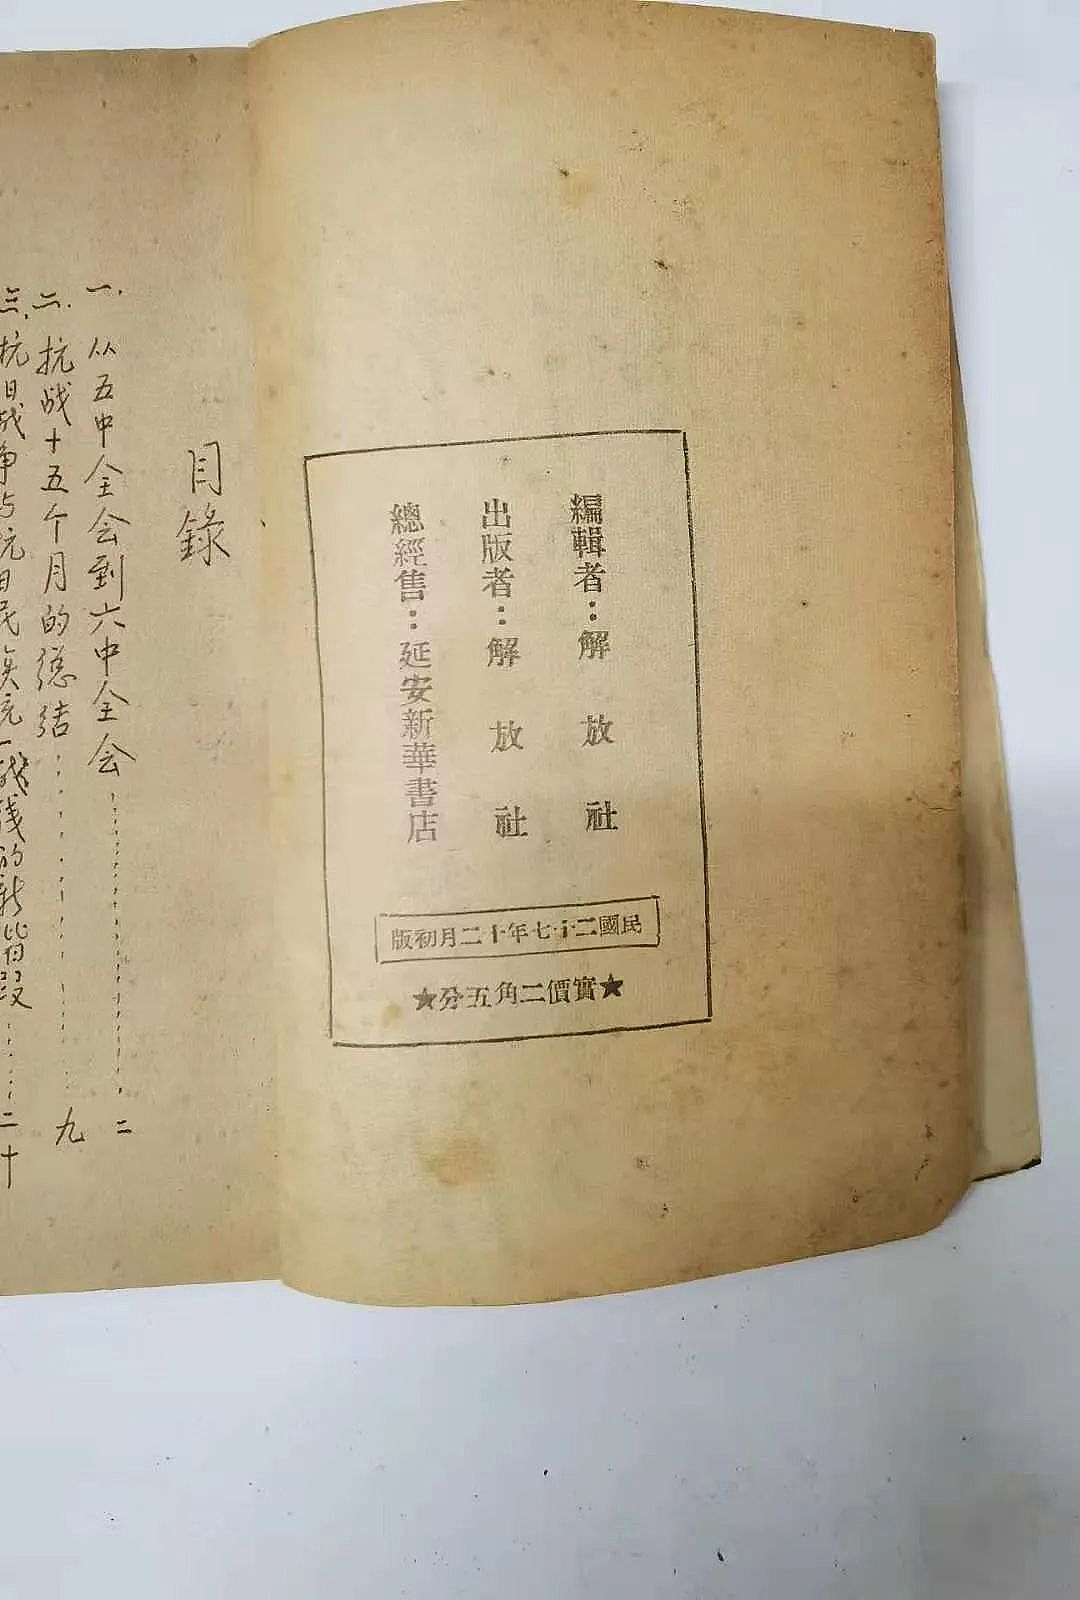 編輯者：解放社
出版者：解放社
總經售：延安新華書店
民國二十七年十二月初版
★實價二角五分★
目錄
一．从五中全会到六中全会……二
二．抗战十五个月的总结……九
三．抗日战争与抗日民族统一战线的新阶段……二十